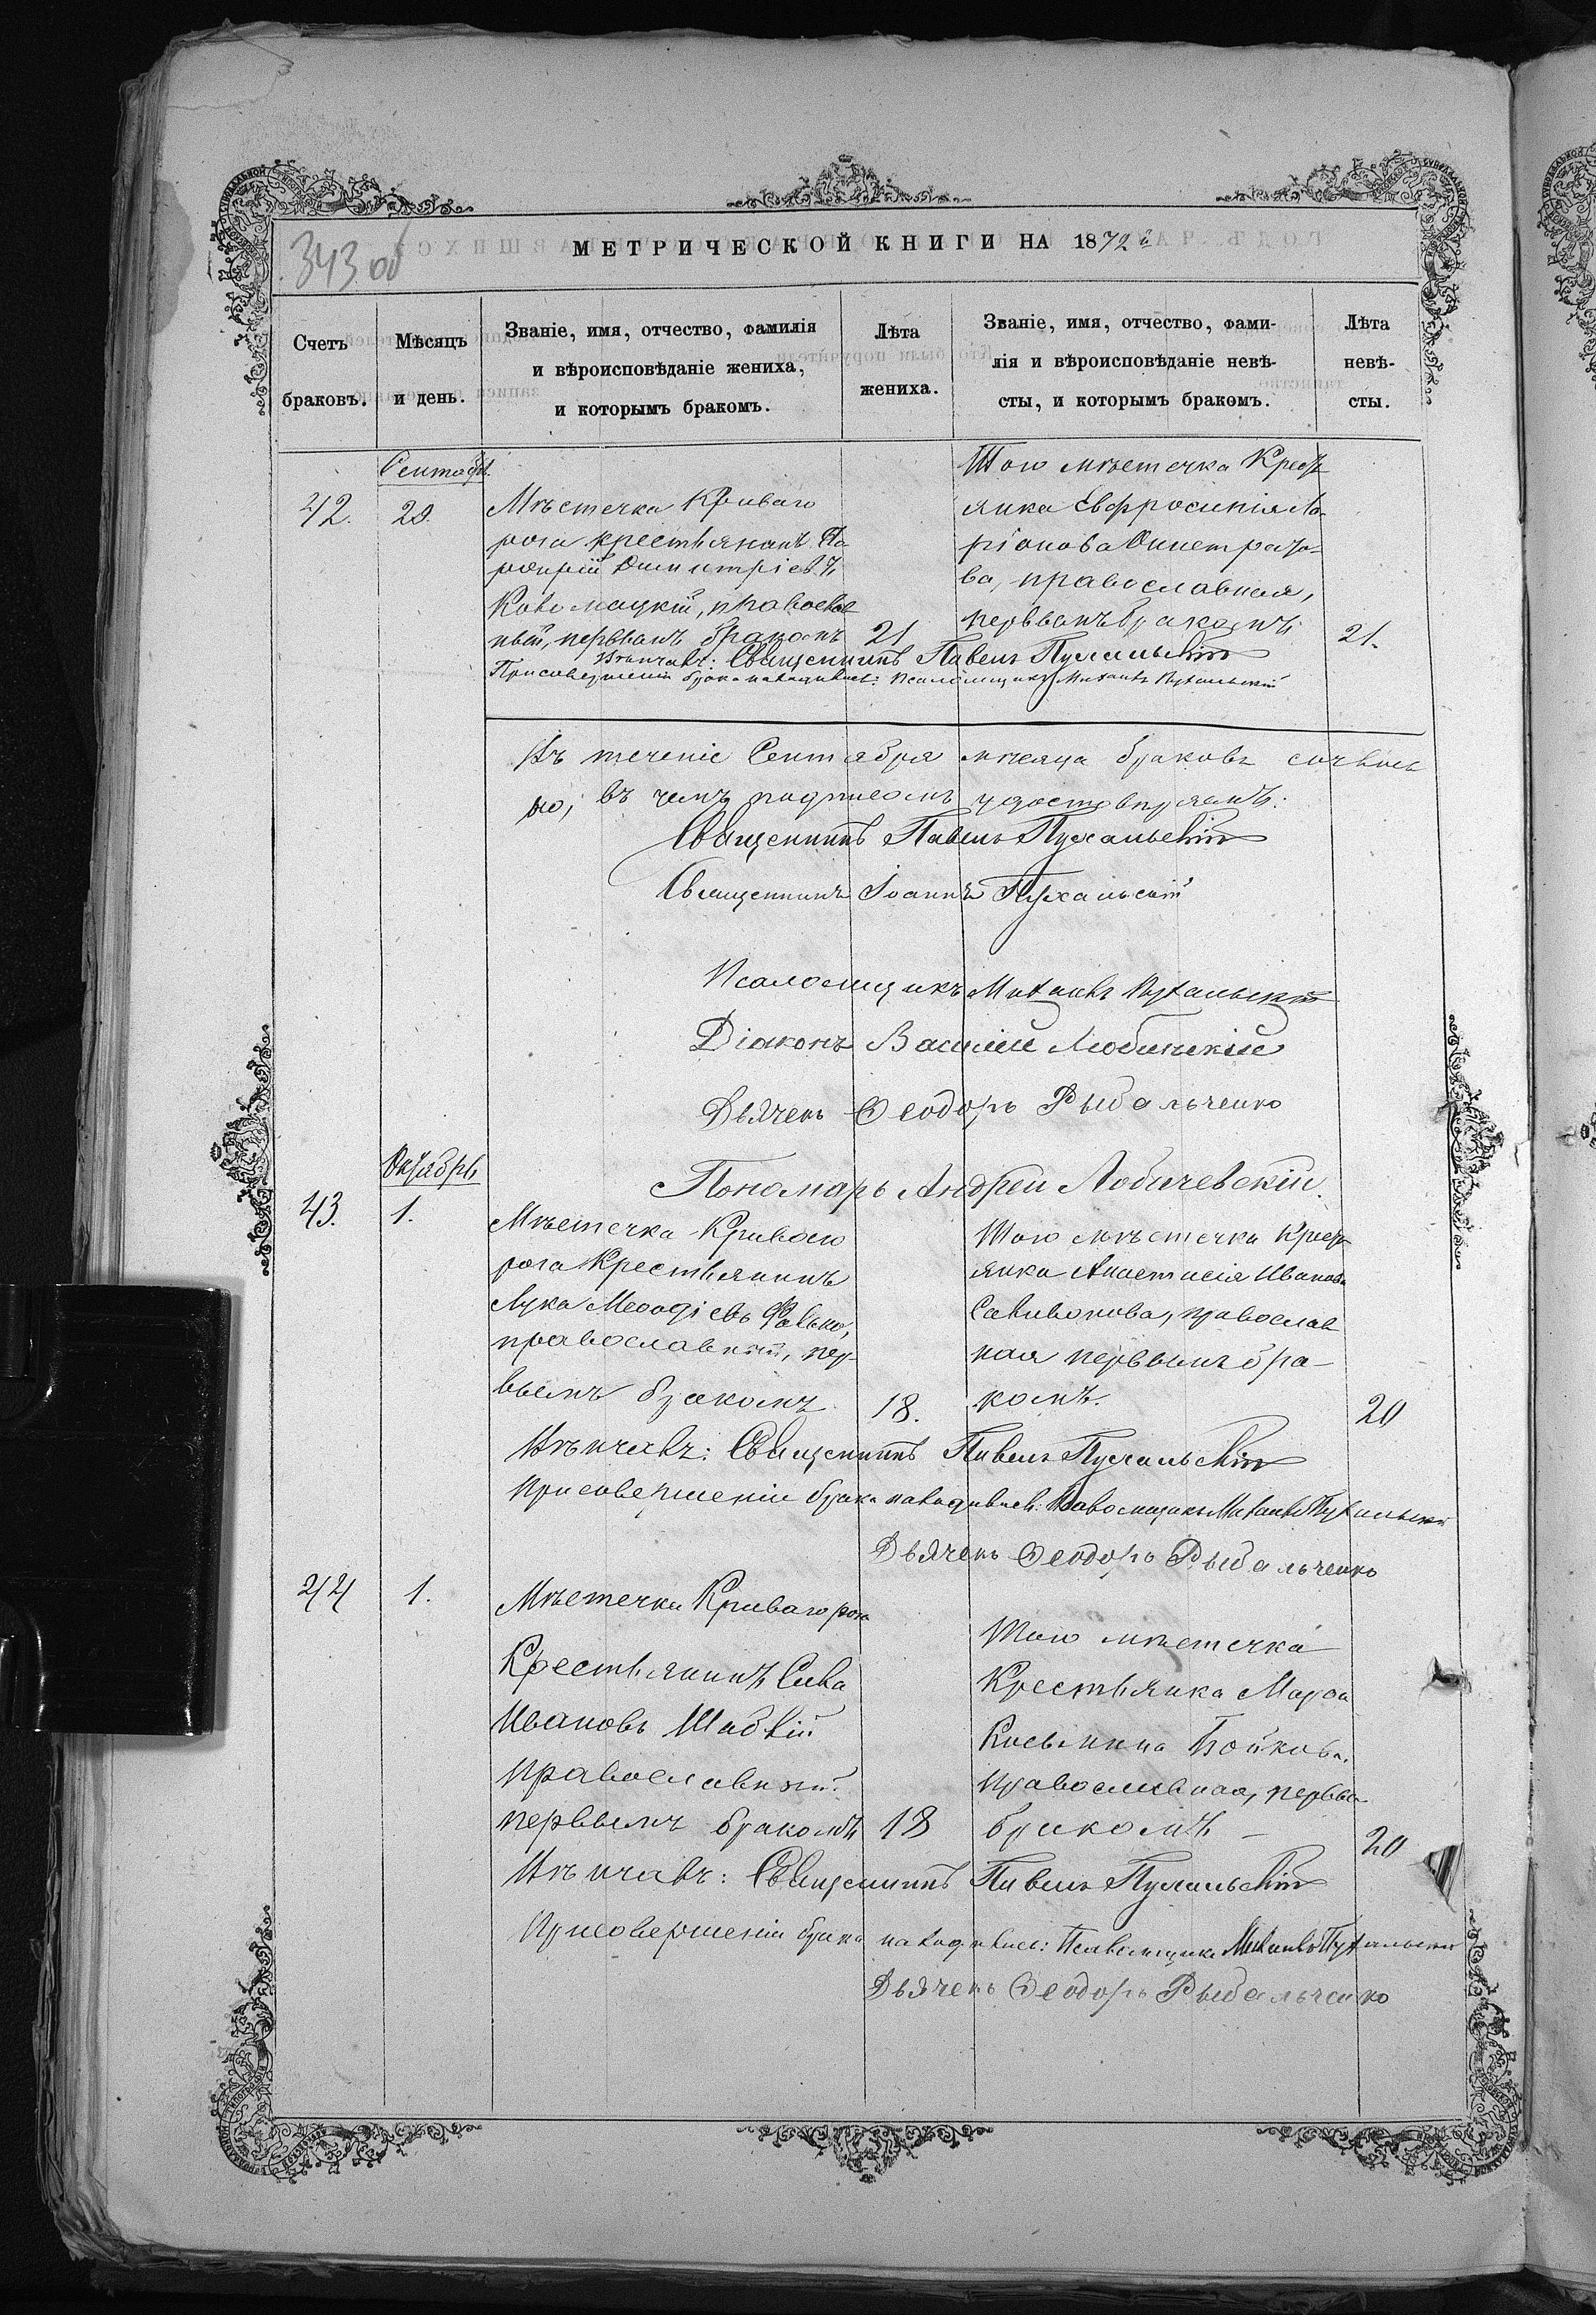 343 об
МЕТРИЧЕСКОЙ КНИГИ НА 1872 й
Счетъ браковъ.
Мѣсяцъ и день.
Званіе, имя, отчество, фамилія
и вѣроисповѣданіе жениха,
и которымъ бракомъ.
Лѣта
жениха.
Званіе, имя, отчество, фами-
лія и вѣроисповѣданіе невѣ-
сты, и которымъ бракомъ.
Лѣта
невѣ-
сты.
Сентябр.
42.
29.
Мѣстечка Криваго
рога крестьянинъ По
рфирій Димитріевъ
православ
ный, первымъ бракомъ
21
Того мѣстечка Крест
янка Евфросинія Ла-
ріонова
ва, православная,
первымъ бракомъ
21.
Вѣнчалъ: Священникъ Павелъ Пухальскій
При совершеніи брака находились: Псаломщикъ Михаилъ Пухальскій
Въ теченіе Сентября мѣсяца браковъ
но; въ чемъ подписомъ удостовѣряемъ:
Священникъ Павелъ Пухальскій
Священникъ Іоаннъ Пухальскій
Псаломщикъ Михаилъ Пухальскій
Діаконъ Василій Любинскій
Дьячекъ Ѳеодоръ Рыбальченко
Пономарь Андрей Лобачевскій.
Октябрь
43.
1.
Мѣстечка Кривого
рога Крестьянинъ
Лука Меѳодіевъ
православный, пер-
вымъ бракомъ
18.
Того мѣстечка Крест
янка Анастасія Иванова
православ
ная первымъ бра-
комъ.
20
Вѣнчалъ: Священникъ Павелъ Пухальскій
При совершеніи брака находились: Псаломщикъ Михаилъ Пухальскій
Дьячекъ Ѳеодоръ Рыбальченко
44
1.
Мѣстечка Криваго рога
Крестьянинъ Сава
Ивановъ
православный
первымъ бракомъ
18
Того мѣстечка
Крестьянка Марѳа
Косьмина Бойкова.
православная, первы
бракомъ –
20
Вѣнчалъ: Священникъ Павелъ Пухальскій
При совершеніи брака находились: Псаломщикъ Михаилъ Пухальскій
Дьячекъ Ѳеодоръ Рыбальченко